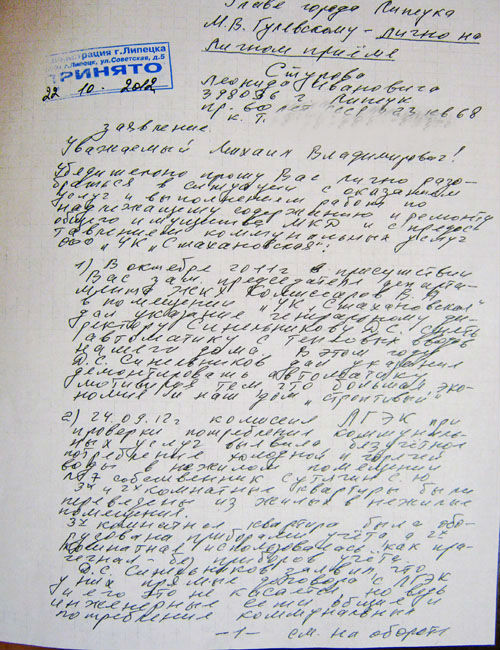 Главе города Липецка
М.В. Гулевскому - лично на
личном приёме
Администрация г. Липецка
г. Липецк, ул. Советская, д.5
ПРИНЯТО
22 10. 2012
Стурова
Леонида Ивановича
398036 г. Липецк
пр. 60 лет СССР кв 68
к. т.
заявление.
Уважаемый Михаил Владимирович!
Убедительно прошу Вас лично разо-
браться в ситуации с оказанием
услуг и выполнением работ по
надлежащему содержанию и ремонту
общего имущества МКД и с предос-
тавлением коммунальных услуг
ООО „УК „Стахановская":
1) В октябре 2011г в присутствии
Вас зам председателя департа-
мента ЖКХ Комиссаров В.А
в помещении „УК „Стахановская"
дал указание генеральному ди-
ректору Синельникову Д.С. снять
автоматику с тепловых вводов
нашего дома. В этом году
Д.С. Синельников дал указания
демонтировать автоматику
мотивируя тем что большая эко-
номия и наш дом „строптивый"
2) 24.09.12г комиссия ЛГЭК при
проверки потребления коммуналь-
ных услуг выявила безучётное
потребление холодной и горячей
воды в нежилом помещении
№7 собственник Сутягин С.Ю.
3х и 2х комнатные квартиры были
переведены из жилых в нежилые
помещения.
3х комнатная квартира была обо-
рудована приборами учёта а 2х
комнатная использовалась как пра-
чечная без приборов учёта.
Д.С. Синельников заявил что
у них прямые договора с ЛГЭК
и его это не касается, но ведь
инженерные сети общие и
потребление коммунальных
-1- см. на обороте